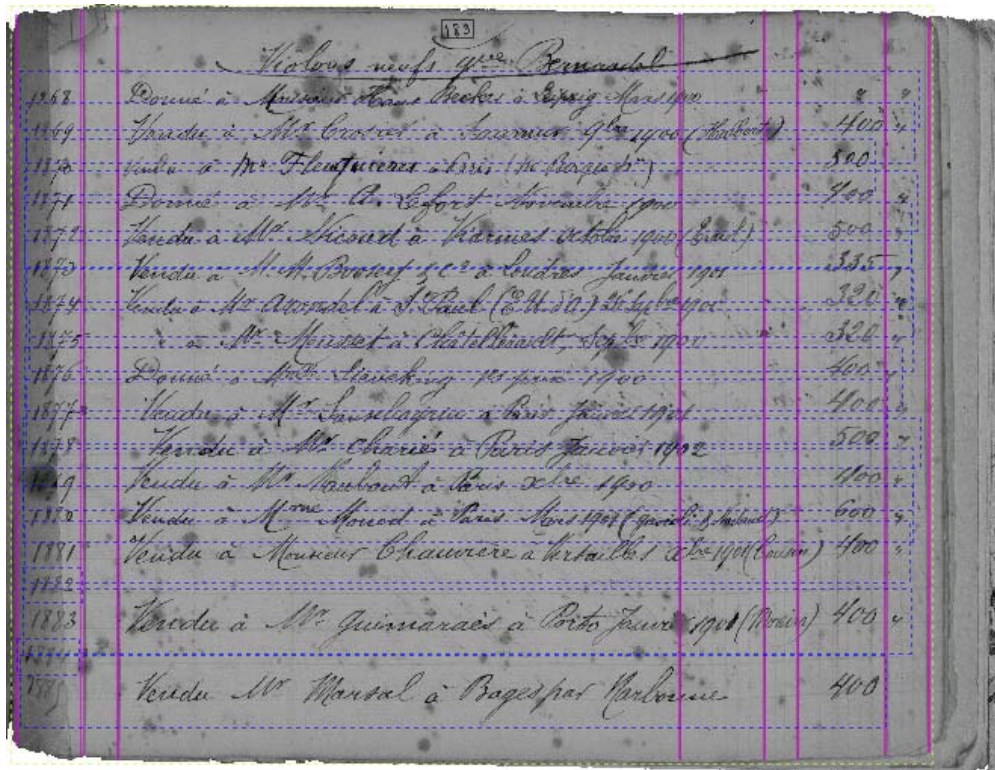 183
Violons neufs gve Bernardel
1868 Donné à Monsieur Hans Becker à Leipzig Mars 1900 " "
1869 Vendu à Mr Crosnier à Saumur 9bre 1900 ( ) 400 "
1870 Vendu à Mr à Paris (Mr ) 300
1871 Donné à Mr A. Lefort Novembre 1900 400 "
1872 Vendu à Mr Nicoud à Viarmes octobre 1900 ( ) 500 "
1873 Vendu à M.M. Boosey & Co à Londres Janvier 1901 335 "
1874 Vendu à Mr à St Paul (E. U. d'A.) 320 "
1875 " à Mr Mousset à Châtellerault, Sepbre 1900 " 320 "
1876 Donné à 1er prix 1900 400 "
1877 Vendu à Mr à Paris Janvier 1901 400 "
1878 Vendu à Mr Charié à Paris Janvier 1902 500 "
1879 Vendu à Mr à Paris xbre 1900 400 "
1880 Vendu à Mme Monod à Paris Mars 1901 ( ) 600 "
1881 Vendu à Monsieur Chauvière à Versailles xbre 1901 (Cousin) 400 "
1882
1883 Vendu à Mr Guimaraès à Porto Janvier 1901 ( ) 400 "
1884
1885 Vendu Mr Marsal à Bages par Narbonne 400